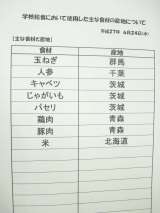 学校給食において使用した主な食材の産地について
平成27年 6月24日(水)
(主な食材と産地)
食材 産地
玉ねぎ 群馬
人参 千葉
キャベツ 茨城
じゃがいも 茨城
パセリ 茨城
鶏肉 青森
豚肉 青森
米 北海道